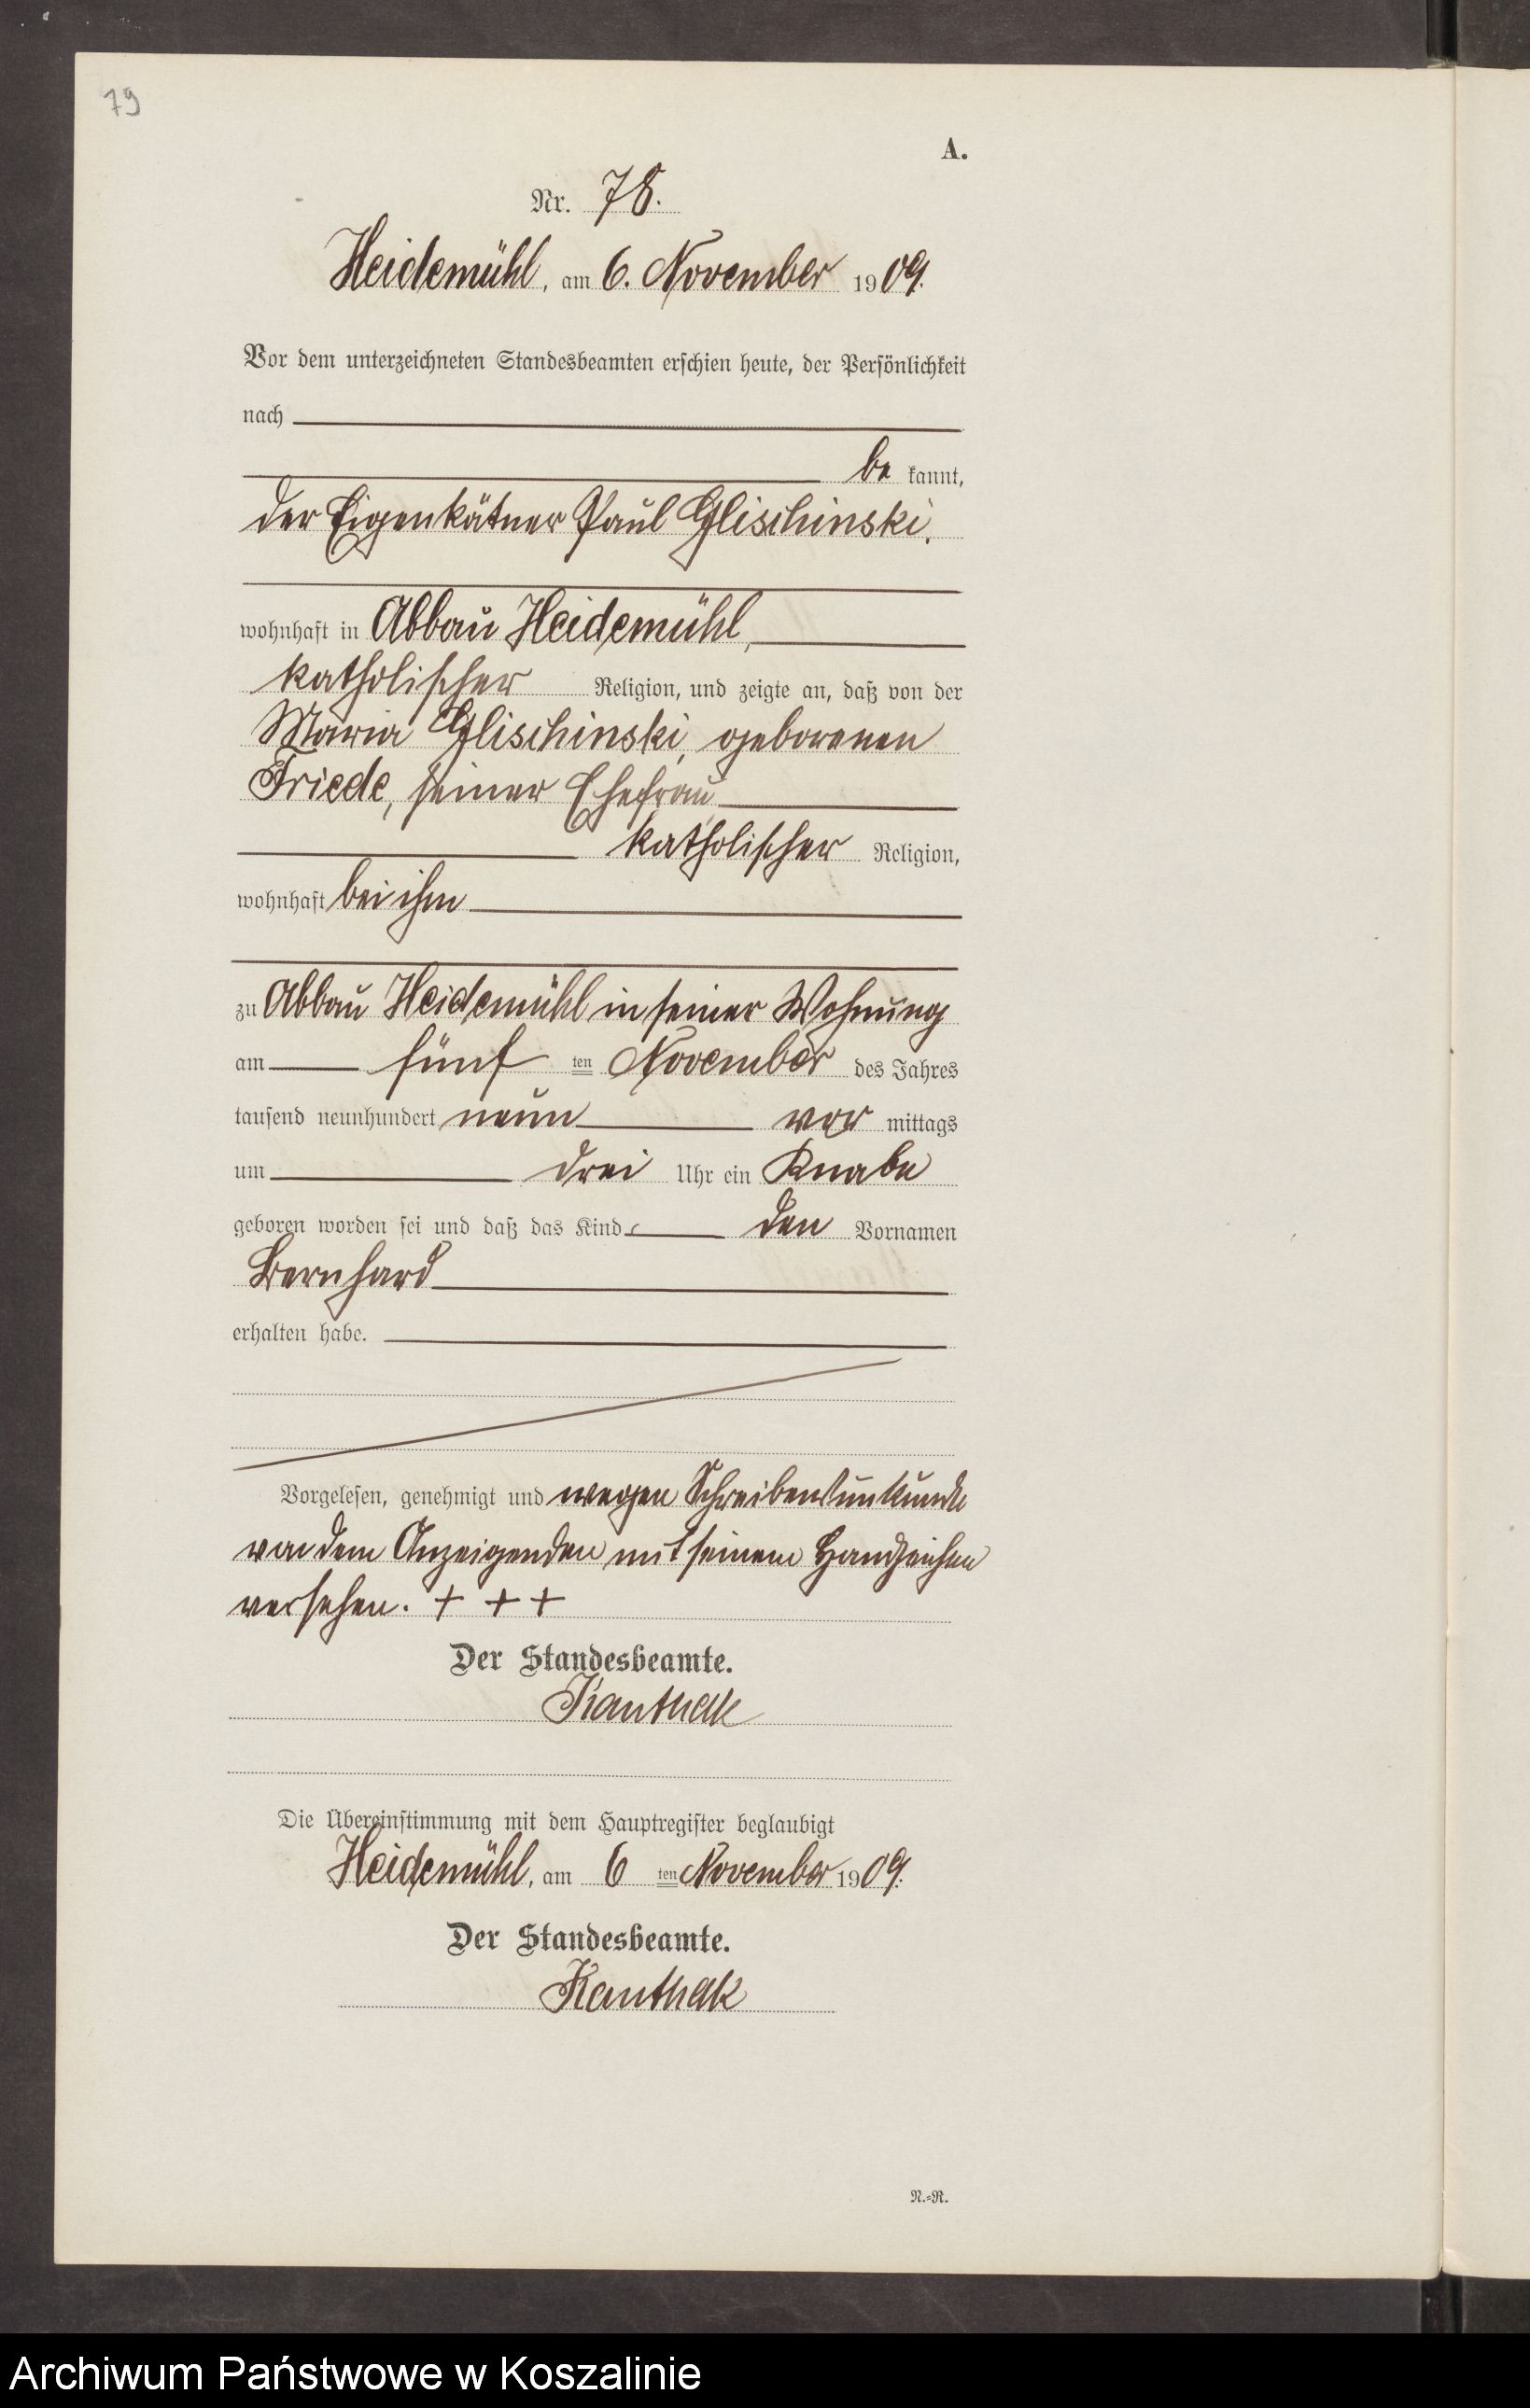 79
A.
Nr. 78.
Heidemühl, am 6. November 1909.
Vor dem unterzeichneten Standesbeamten erschien heute, der Persönlichkeit
nach
be kannt,
der Eigenkätner Paul Glischinski,
wohnhaft in Abbau Heidemühl,
katholischer Religion, und zeigte an, daß von der
Maria Glischinski, geborenen
Friede, seiner Ehefrau
katholischer Religion,
wohnhaft bei ihm
zu Abbau Heidemühl in seiner Wohnung
am fünf ten November des Jahres
tausend neunhundert neun vor mittags
um drei Uhr ein Knabe
geboren worden sei und daß das Kind den Vornamen
Bernhard
erhalten habe.
Vorgelesen, genehmigt und wegen Schreibensunkunde
von dem Anzeigenden mit seinem Handzeichen
versehen. + + +
Der Standesbeamte.
Kanthak
Die Übereinstimmung mit dem Hauptregister beglaubigt
Heidemühl, am 6 ten November 1909.
Der Standesbeamte.
Kanthak
N.=R.
Archiwum Państwowe w Koszalinie